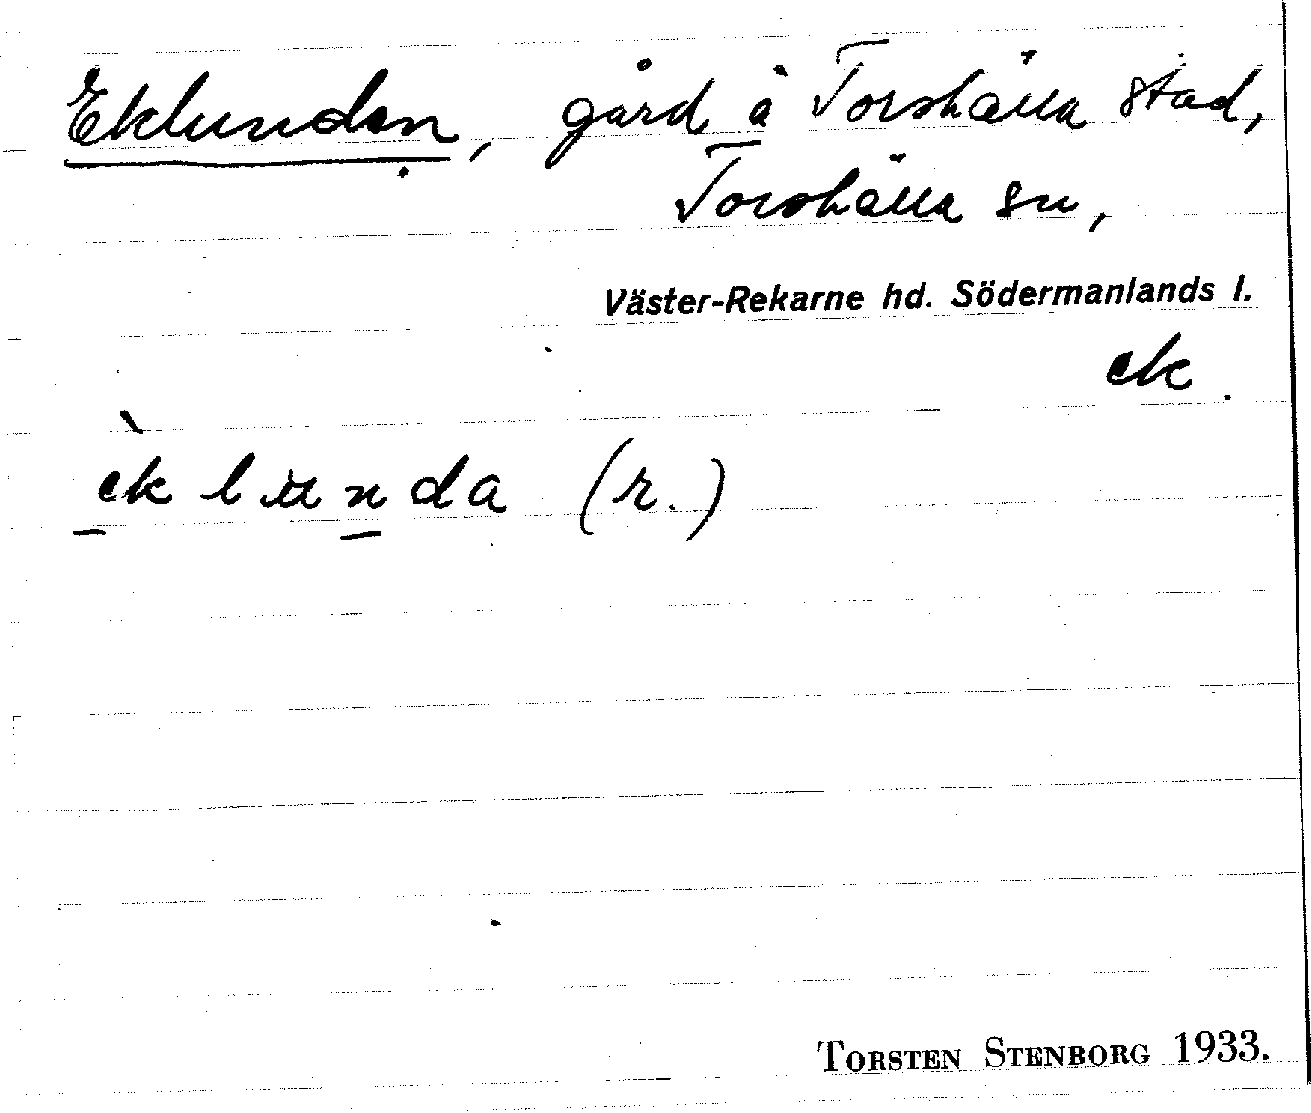 Eklunden, gård å Torshälla stad,
Torshälla sn,
Väster-Rekarne hd. Södermanlands l.
ek
èklunda (r.)
TORSTEN STENBORG 1933.